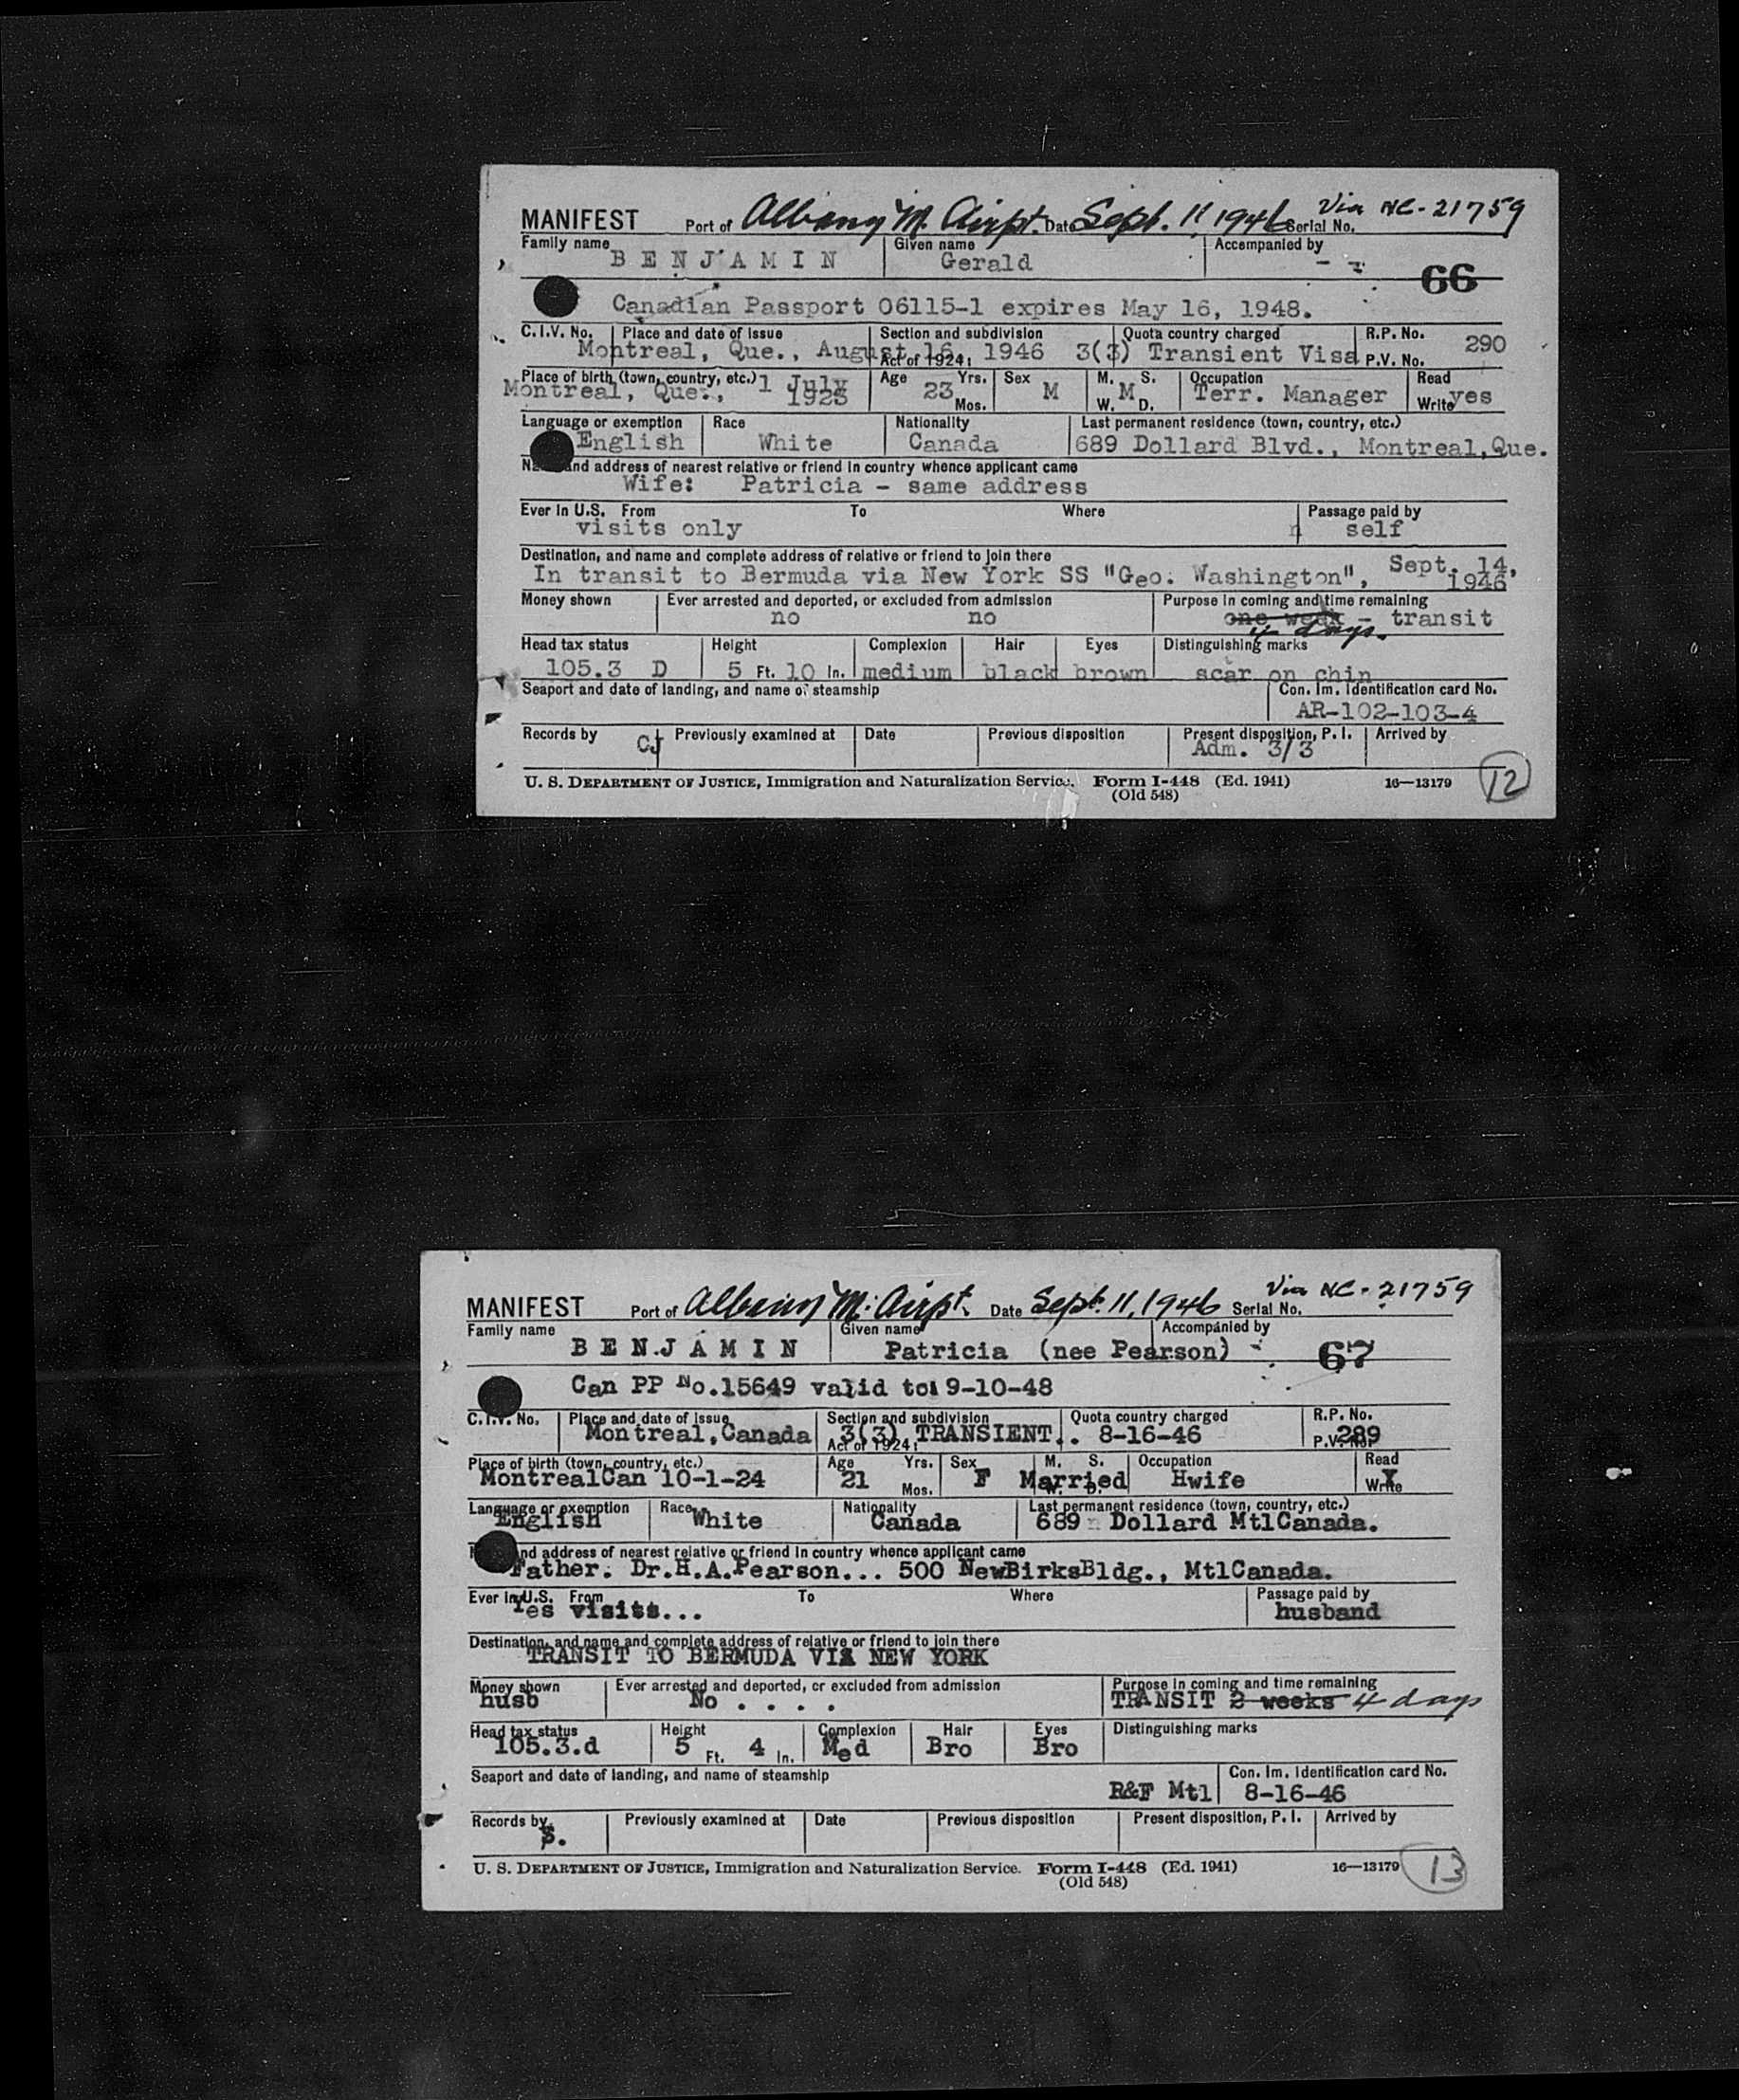 MANIFEST Port of Albany M. Airpt. Date Sept. 11, 1946 Serial No. Via NC-21759
Family name BENJAMIN Given name Gerald Accompanied by - - 66
Canadian Passport 06115-1 expires May 16, 1948.
C.I.V. No. Place and date of issue Section and subdivision Quota country charged R.P. No.
Montreal, Que., August 16, 1946 Act of 1924: 3(3) Transient Visa P.V. No. 290
Place of birth (town, country, etc.) 1 July Age Yrs. Sex M. S. Occupation Read
Montreal, Que., 1923 23 Mos. M M W. D. Terr. Manager Write yes
Language or exemption Race Nationality Last permanent residence (town, country, etc.)
English White Canada 689 Dollard Blvd., Montreal, Que.
and address of nearest relative or friend in country whence applicant came
Wife: Patricia - same address
Ever in U.S. From To Where Passage paid by
visits only self
Destination, and name and complete address of relative or friend to join there
In transit to Bermuda via New York SS "Geo. Washington", Sept. 14, 1946
Money shown Ever arrested and deported, or excluded from admission Purpose in coming and time remaining
no no one week - transit
4 days.
Head tax status Height Complexion Hair Eyes Distinguishing marks
105.3 D 5 Ft. 10 In. medium black brown scar on chin
Seaport and date of landing, and name of steamship Con. Im. Identification card No.
AR-102-103-4
Records by CJ Previously examined at Date Previous disposition Present disposition, P. I. Arrived by
Adm. 3/3
U. S. DEPARTMENT OF JUSTICE, Immigration and Naturalization Service. Form I-448 (Ed. 1941) 16—13179 12
(Old 548)
MANIFEST Port of Albany M. Airpt. Date Sept. 11, 1946 Serial No. Via NC-21759
Family name Given name Accompanied by
BENJAMIN Patricia (nee Pearson) - 67
Can PP No.15649 valid to: 9-10-48
C.I.V. No. Place and date of issue Section and subdivision Quota country charged R.P. No.
Montreal, Canada Act of 1924: 3(3) TRANSIENT.. 8-16-46 P.V. No. 289
Place of birth (town, country, etc.) Age Yrs. Sex M. S. Occupation Read
MontrealCan 10-1-24 21 Mos. F Married W. D. Hwife Write Y
Language or exemption Race Nationality Last permanent residence (town, country, etc.)
English White Canada 689 Dollard MtlCanada.
and address of nearest relative or friend in country whence applicant came
Father. Dr.H.A.Pearson... 500 NewBirksBldg., MtlCanada.
Ever in U.S. From To Where Passage paid by
Yes visits... husband
Destination, and name and complete address of relative or friend to join there
TRANSIT TO BERMUDA VIA NEW YORK
Money shown Ever arrested and deported, or excluded from admission Purpose in coming and time remaining
husb No . . . . TRANSIT 2 weeks 4 days
Head tax status Height Complexion Hair Eyes Distinguishing marks
105.3.d 5 Ft. 4 In. Med Bro Bro
Seaport and date of landing, and name of steamship Con. Im. Identification card No.
R&F Mtl 8-16-46
Records by Previously examined at Date Previous disposition Present disposition, P. I. Arrived by
S.
U. S. DEPARTMENT OF JUSTICE, Immigration and Naturalization Service. Form I-448 (Ed. 1941) 16—13179 13
(Old 548)